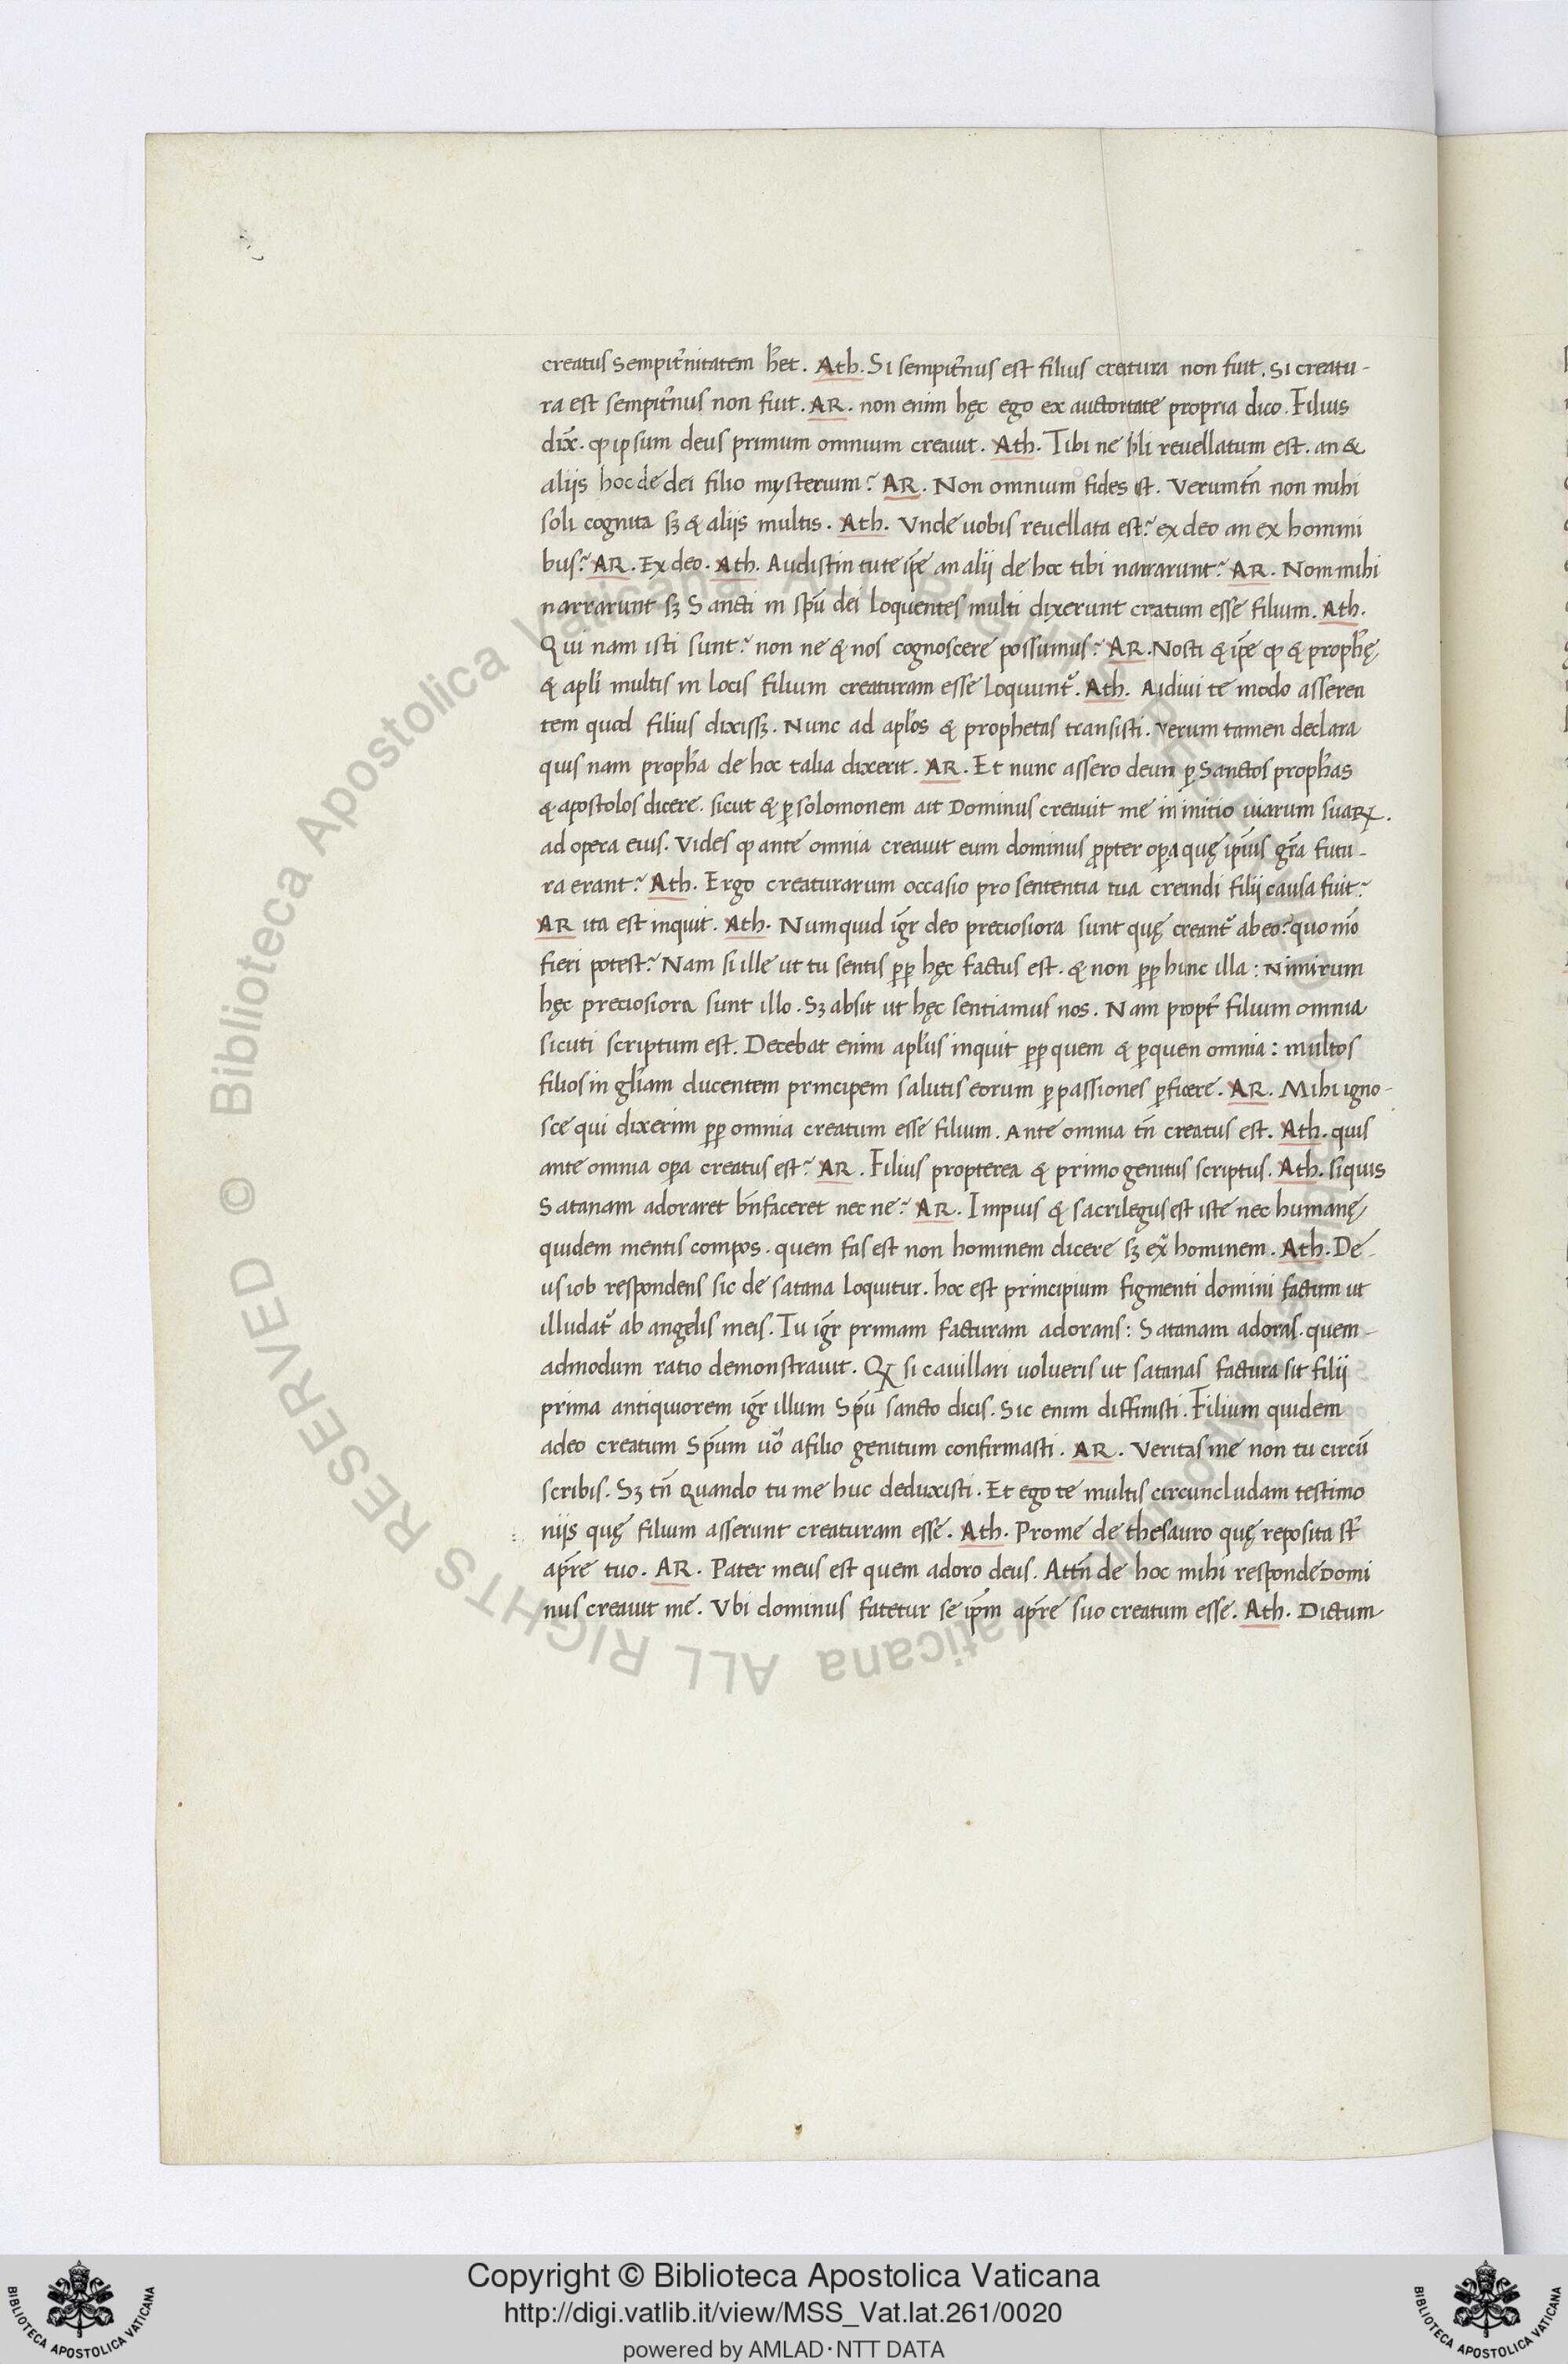 creatus sempit̄nitatem h̄et. Ath. Si sempit̄nus est filius creatura non fuit. Si creatu-
ra est sempit̄nus non fuit. AR. non enim hęc ego ex auctoritate propria dico. Filius
dix̄. ꝙ ipsum deus primum omnium creauit. Ath. Tibi ne reuellatum est. an &
aliis hoc de dei filio mysterium? AR. Non omnium fides est. Verumtn̄ non mihi
soli cognita sꝫ & aliis multis. Ath. Vnde uobis reuellata est? ex deo an ex homini
bus? AR. Ex deo. Ath. Audistin tute ip̄e an alii de hoc tibi narrarunt? AR. Non mihi
narrarunt sꝫ Sancti in sp̄u dei loquentes multi dixerunt cratum esse filium. Ath.
Qui nam isti sunt? non ne & nos cognoscere possumus? AR. Nosti & ip̄e ꝙ & proph̄ę
& apl̄i multis in locis filium creaturam esse loquunt᷑. Ath. Audiui te modo asseren
tem quod filius dixissꝫ. Nunc ad apl̄os & prophetas transisti. Verum tamen declara
quis nam proph̄a de hoc talia dixerit. AR. Et nunc assero deum ꝑ Sanctos proph̄as
& apostolos dicere. sicut & ꝑ solomonem ait Dominus creauit me in initio uiarum suaꝝ.
ad opera eius. Vides ꝙ ante omnia creauit eum dominus ꝓpter oꝑa quę ipsius gr̄a futu-
ra erant? Ath. Ergo creaturarum occasio pro sententia tua creandi filii causa fuit?
AR ita est inquit. Ath. Numquid igr̄ deo preciosiora sunt quę creant᷑ ab eo? quo mō
fieri potest? Nam si ille ut tu sentis ꝓꝑ hęc factus est. & non ꝓꝑ hunc illa: Nimirum
hęc preciosiora sunt illo. Sꝫ absit ut hęc sentiamus nos. Nam propt̄ filium omnia
sicuti scriptum est. Decebat enim apl̄us inquit ꝓꝑ quem & ꝑ quem omnia: multos
filios in gl̄iam ducentem principem salutis eorum ꝑ passiones ꝑficere. AR. Mihi igno-
sce qui dixerim ꝓꝑ omnia creatum esse filium. Ante omnia tn̄ creatus est. Ath. quis
ante omnia oꝑa creatus est? AR. Filius propterea & primogenitus scriptus. Ath. si quis
Satanam adoraret bn̄ faceret nec ne? AR. Impius & sacrilegus est iste nec humanę
quidem mentis compos. quem fas est non hominem dicere sꝫ ex hominem. Ath. De-
us iob respondens sic de satana loquitur. hoc est principium figmenti domini factum ut
illudat᷑ ab angelis meis. Tu igr̄ primam facturam adorans: Satanam adoras. quem-
admodum ratio demonstrauit. Qꝝ si cauillari uolueris ut satanas factura sit filii
prima antiquiorem igr̄ illum Sp̄u sancto dicis. Sic enim diffinisti. Filium quidem
a deo creatum Sp̄um uō a filio genitum confirmasti. AR. Veritas me non tu circū
scribis. Sꝫ tn̄ Quando tu me huc deduxisti. Et ego te multis circuncludam testimo
niis quę filium asserunt creaturam esse. Ath. Prome de thesauro quę reposita st̄
a pr̄e tuo. AR. Pater meus est quem adoro deus. Attn̄ de hoc mihi responde Domi
nus creauit me. Vbi dominus fatetur se ip̄m a pr̄e suo creatum esse. Ath. Dictum
© Biblioteca Apostolica Vaticana ALL RIGHTS RESERVED
Copyright © Biblioteca Apostolica Vaticana
http://digi.vatlib.it/view/MSS_Vat.lat.261/0020
powered by AMLAD·NTT DATA
BIBLIOTECA APOSTOLICA VATICANA
BIBLIOTECA APOSTOLICA VATICANA